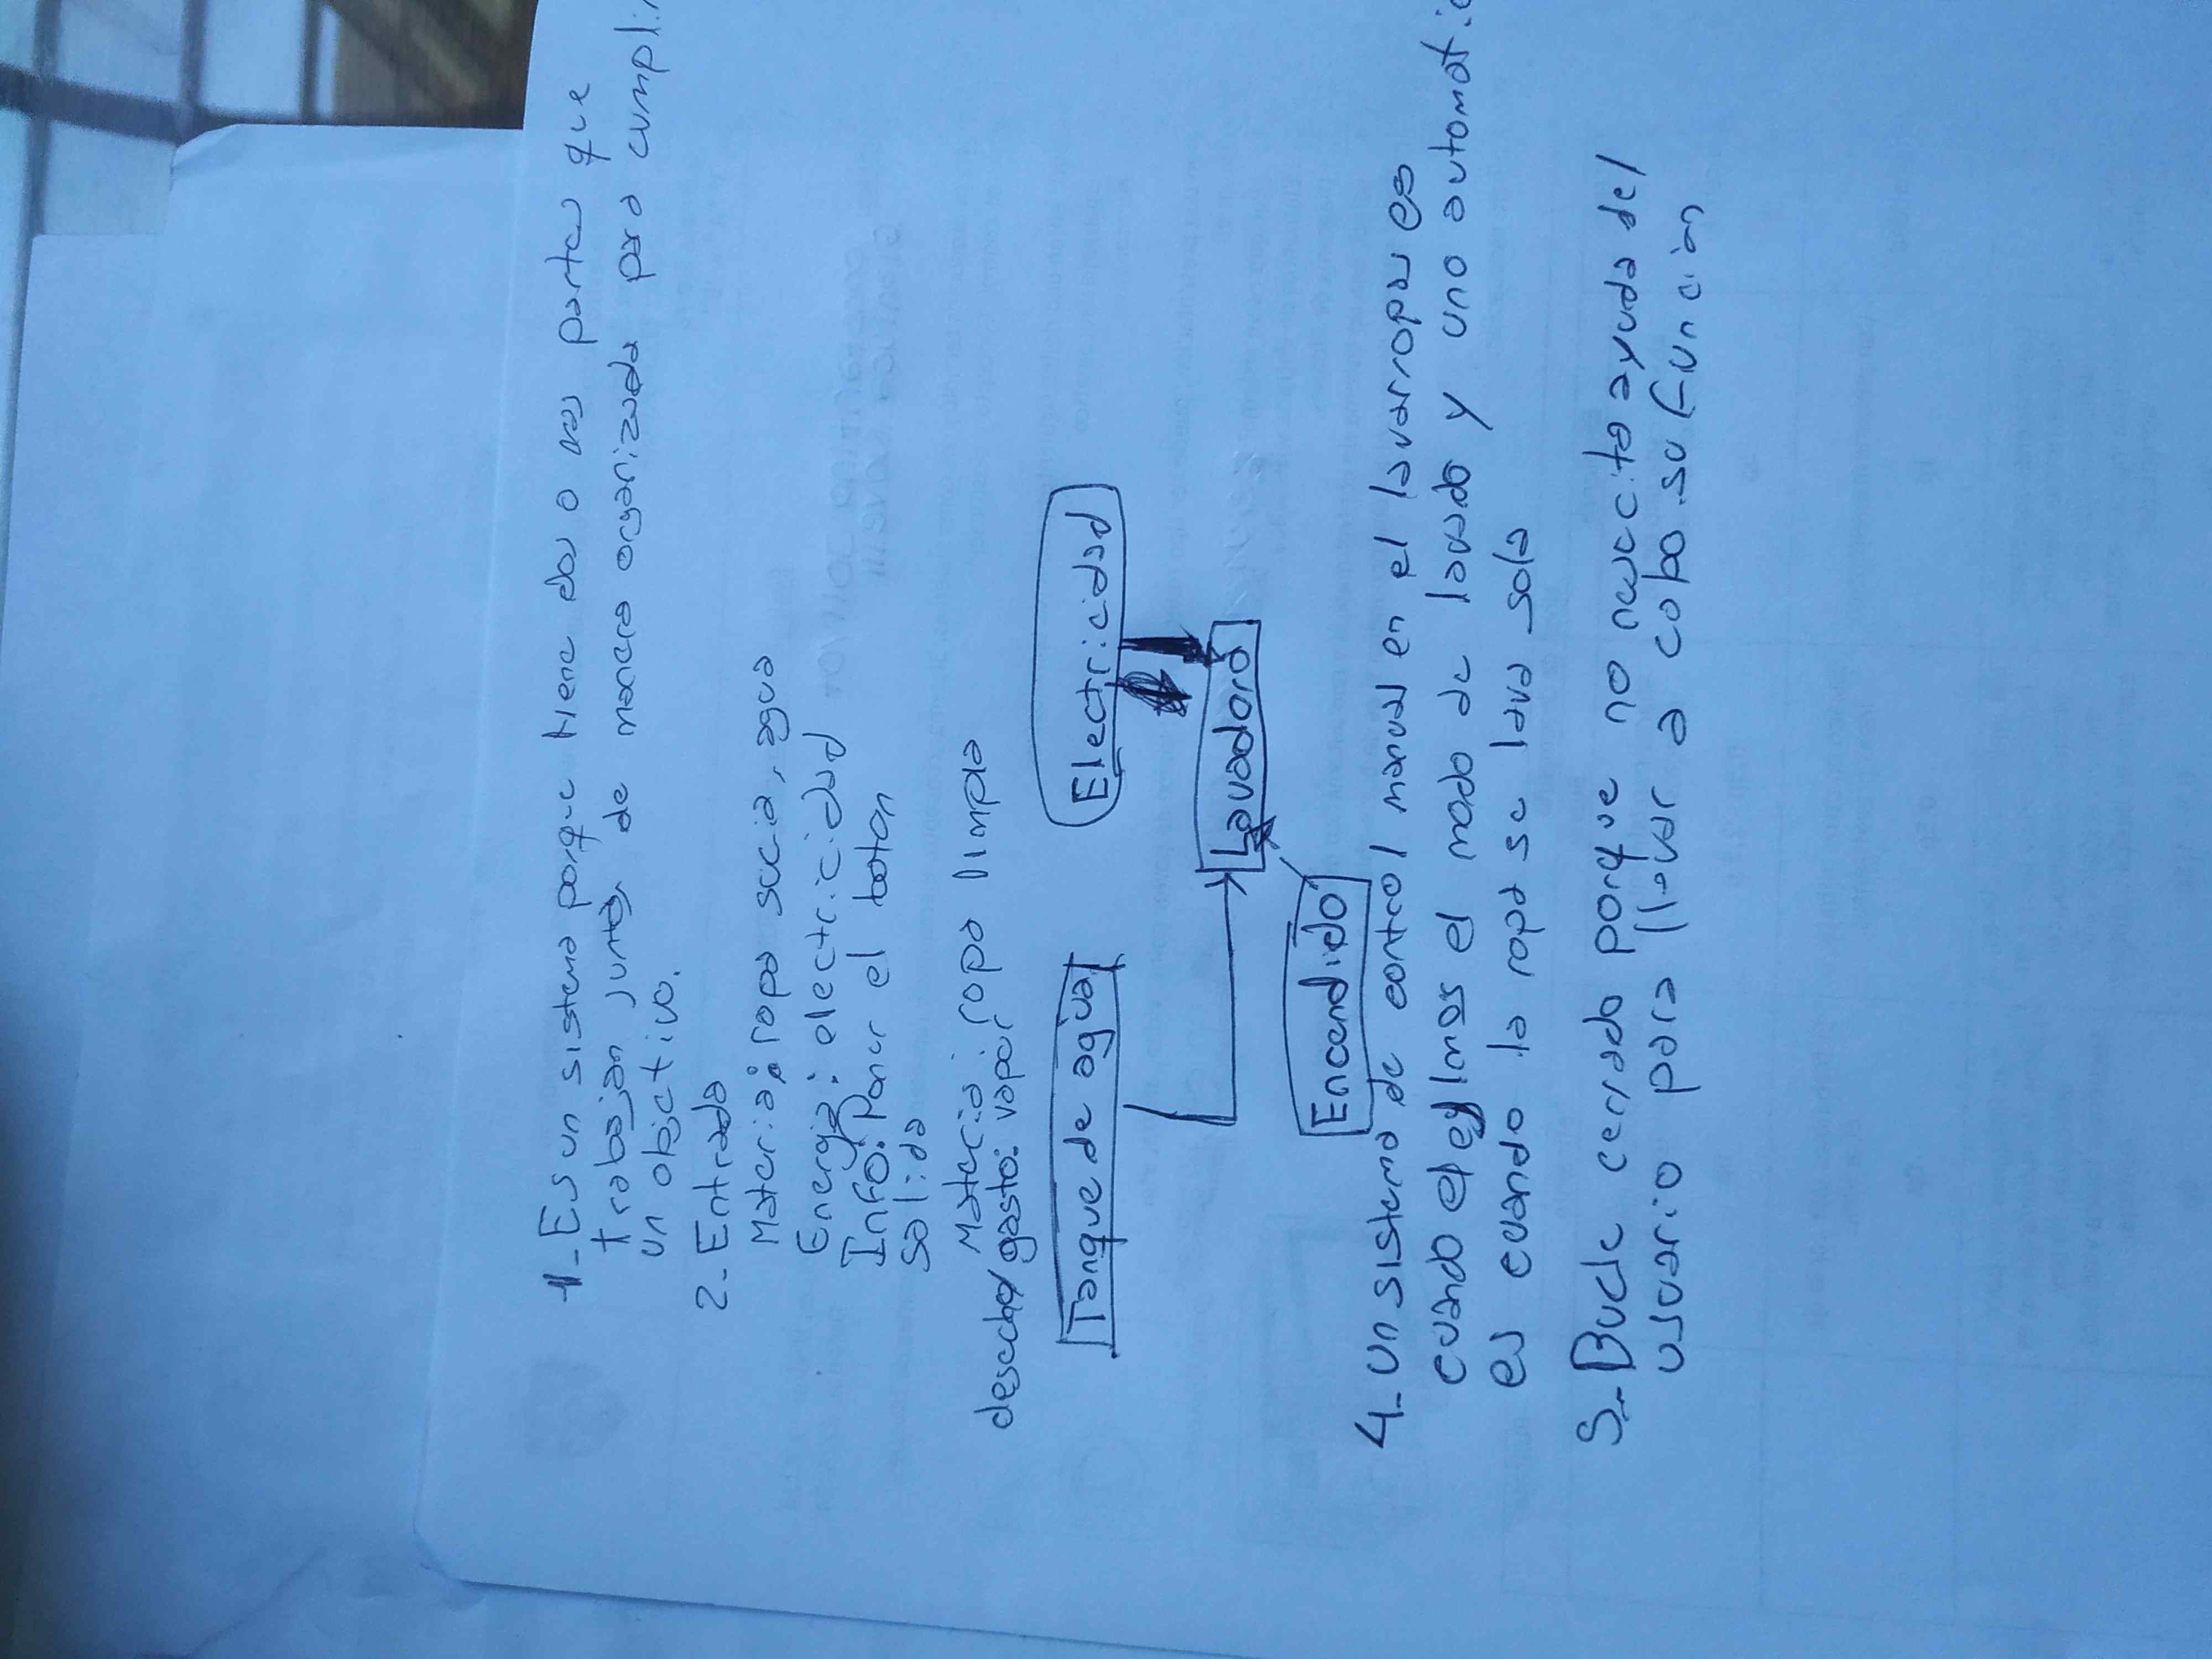 1- Es un sistema porque tiene dos o mas partes que
trabajan juntas de manera organizada para cumplir
un objetivo.
2- Entrada
Materia: ropa sucia, agua
Energia: electricidad
Info: Poner el boton
Salida
Materia: ropa limpia
desecho/gasto: vapor
Electricidad
Tanque de agua
Lavadora
Encendido
4- Un sistema de control manual en el lavarropas es
cuando elegimos el modo de lavado y uno automatic
es cuando la ropa se lava sola
5- Bucle cerrado porque no necesita ayuda del
usuario para llevar a cabo su función